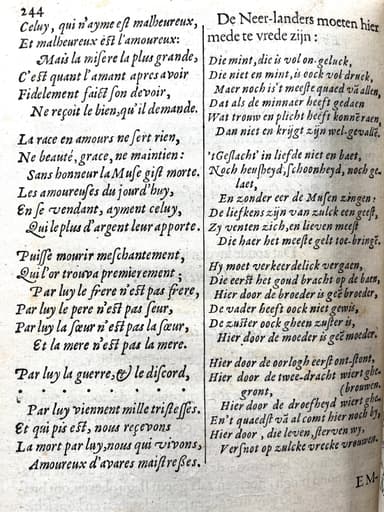 244
Celuy, qui n'ayme est malheureux,
Et malheureux est l'amoureux:
Mais la misere la plus grande,
C'est quant l'amant apres avoir
Fidelement faict son devoir,
Ne reçoit le bien, qu'il demande.
La race en amours ne sert rien,
Ne beauté, grace, ne maintien:
Sans honneur la Muse gist morte.
Les amoureuses du jourd'huy,
En se vendant, ayment celuy,
Qui le plus d'argent leur apporte.
Puisse mourir meschantement,
Qui l'or trouva premierement;
Par luy le frere n'est pas frere,
Par luy le pere n'est pas seur,
Par luy la sœur n'est pas la sœur,
Et la mere n'est pas la mere.
Par luy la guerre, & le discord,
. . . . . . . . . .
Par luy viennent mille tristesses.
Et qui pis est, nous reçevons
La mort par luy, nous qui vivons,
Amoureux d'avares maistresses.
De Neer-landers moeten hier
mede te vrede zijn:
Die mint, die is vol on-geluck,
Die niet en mint, is oock vol druck,
Maer noch is't meeste quaed vā allen,
Dat als de minnaer heeft gedaen
Wat trouw en plicht heeft konnē raen,
Dan niet en krijgt zijn wel-gevallē.
'tGeslacht' in liefde niet en baet,
Noch heusheyd, schoonheyd, noch ge-
laet,
En zonder eer de Musen zingen:
De liefkens zijn van zulck een geest,
Zy venten zich, en lieven meest
Die haer het meeste gelt toe-bringē.
Hy moet verkeerdelick vergaen,
Die eerst het goud bracht op de baen,
Hier door de broeder is geē broeder,
De vader heeft oock niet gewis,
De zuster oock gheen zuster is,
Hier door de moeder is geē moeder.
Hier door de oorlogh eerst ont-stont,
Hier door de twee-dracht wiert ghe-
gront, (brouwen.
Hier door de droefheyd wiert ghe-
En't quaedst vā al comt hier noch by,
Hier door, die leven, sterven wy,
Versnot op zulcke vrecke vrouwen.
EM-